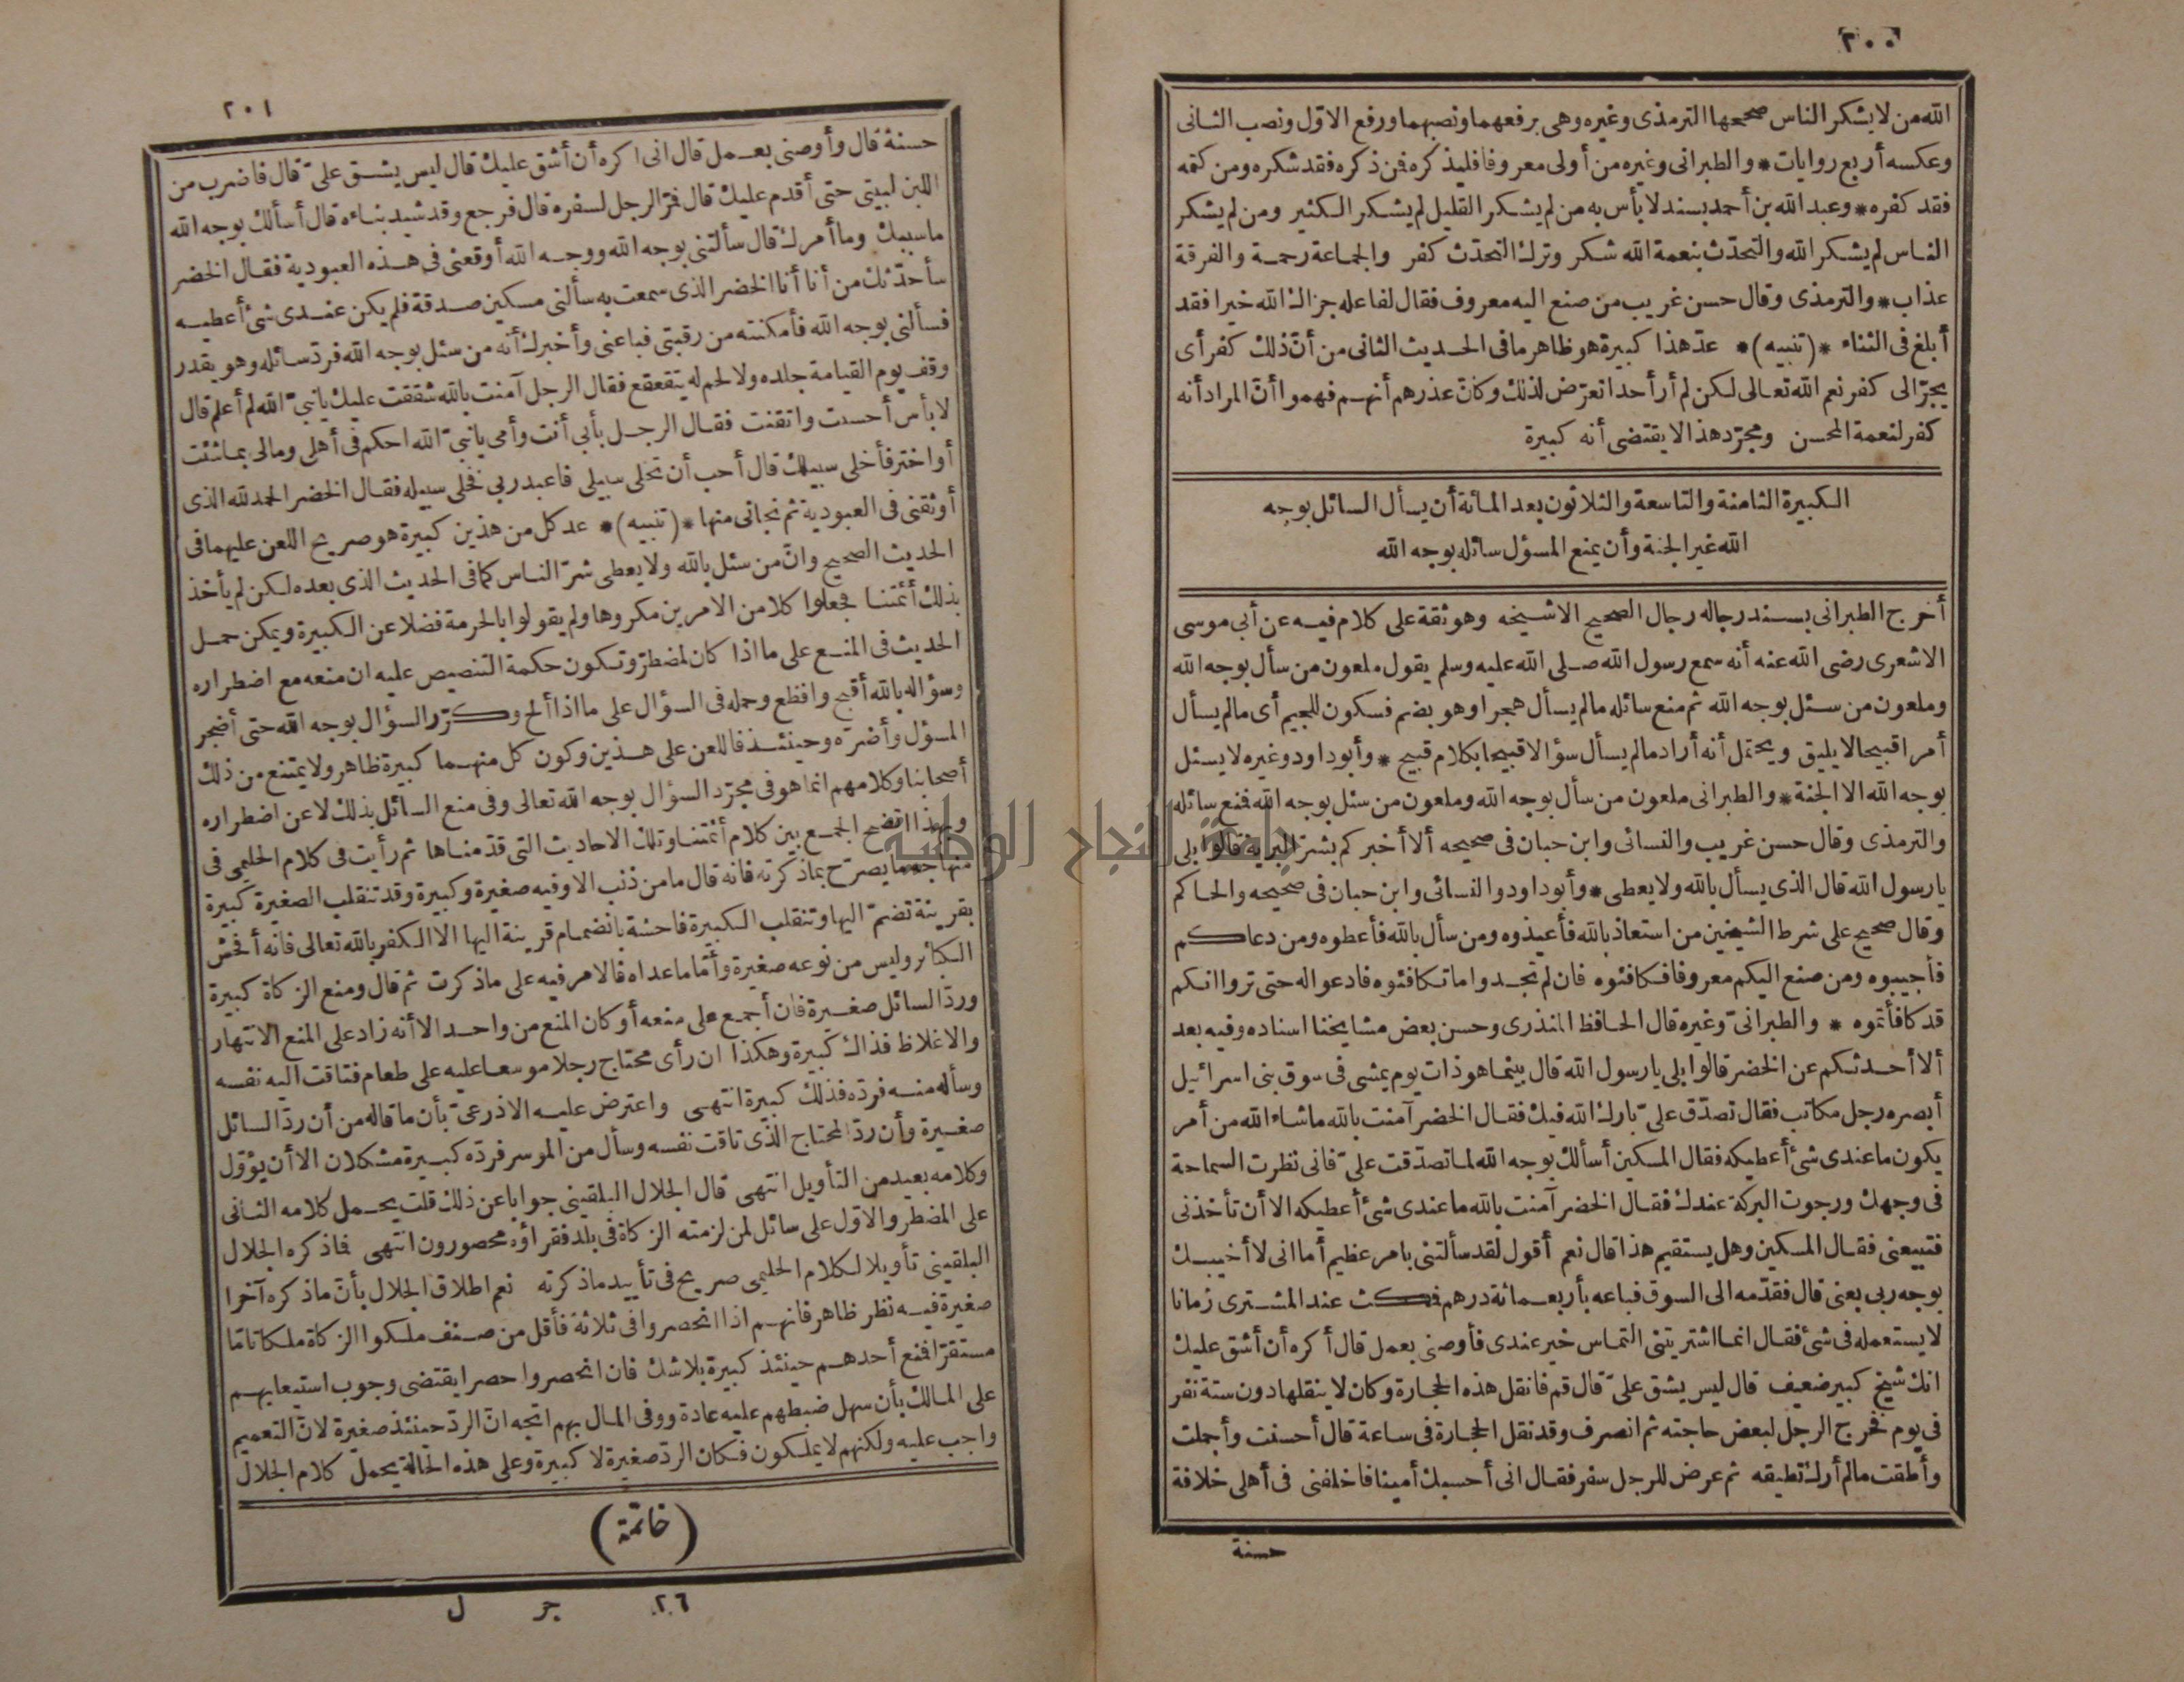 ٢٠٠
الله من لا يشكر الناس صححها الترمذى وغيره وهى برفعهما ونصبهما ورفع الاوّل ونصب الثانى
وعكسه أربع روايات * والطبرانى وغيره من أولى معروفا فليذكره فمن ذكره فقد شكره ومن كتمه
فقد كفره * وعبد الله بن أحمد بسند لا بأس به من لم يشكر القليل لم يشكر الكثير ومن لم يشكر
الناس لم يشكر الله والتحدّث بنعمة الله شكر وترك التحدّث كفر والجماعة رحمة والفرقة
عذاب * والترمذى وقال حسن غريب من صنع اليه معروف فقال لفاعله جزاك الله خيرا فقد
أبلغ فى الثناء * (تنبيه) * عدّ هذا كبيرة هو ظاهر ما فى الحديث الثانى من أنّ ذلك كفر أى
يجرّ الى كفر نعم الله تعالى لكن لم أر أحدا تعرّض لذلك وكانّ عذرهم أنهم فهموا أنّ المراد أنه
كفر لنعمة المحسن ومجرّد هذا لا يقتضى أنه كبيرة
الكبيرة الثامنة والتاسعة والثلاثون بعد المائة أن يسأل السائل بوجه
الله غير الجنة وأن يمنع المسؤل سائله بوجه الله
أخرج الطبرانى بسند رجاله رجال الصحيح الا شيخه وهو ثقة على كلام فيه عن أبى موسى
الاشعرى رضى الله عنه أنه سمع رسول الله صلى الله عليه وسلم يقول ملعون من سأل بوجه الله
وملعون من سئل بوجه الله ثم منع سائله ما لم يسأل هجرا وهو بضم فسكون للجيم أى ما لم يسأل
أمرا قبيحا لا يليق ويحتمل أنه أراد ما لم يسأل سؤالا قبيحا بكلام قبيح * وأبو داود وغيره لا يسئل
بوجه الله الا الجنة * والطبرانى ملعون من سأل بوجه الله وملعون من سئل بوجه الله فمنع سائله
والترمذى وقال حسن غريب والنسائى وابن حبان فى صحيحه ألا أخبركم بشرّ البرية قالوا بلى
يا رسول الله قال الذى يسأل بالله ولا يعطى * وأبو داود والنسائى وابن حبان فى صحيحه والحاكم
وقال صحيح على شرط الشيخين من استعاذ بالله فأعيذوه ومن سأل بالله فأعطوه ومن دعاكم
فأجيبوه ومن صنع اليكم معروفا فكافئوه فان لم تجدوا ما تكافئوه فادعوا له حتى تروا انكم
قد كافأتموه * والطبرانىّ وغيره قال الحافظ المنذرى وحسن بعض مشايخنا اسناده وفيه بعد
ألا أحدثكم عن الخضر قالوا بلى يا رسول الله قال بينما هو ذات يوم يمشى فى سوق بنى اسرائيل
أبصره رجل مكاتب فقال تصدّق علىّ بارك الله فيك فقال الخضر آمنت بالله ما شاء الله من أمر
يكون ما عندى شئ أعطيكه فقال المسكين أسألك بوجه الله لما تصدّقت علىّ فانى نظرت السماحة
فى وجهك ورجوت البركة عندك فقال الخضر آمنت بالله ما عندى شئ أعطيكه الا أن تأخذنى
فتبيعنى فقال المسكين وهل يستقيم هذا قال نعم أقول لقد سألتنى بامر عظيم أما انى لا أخيبك
بوجه ربى بعنى قال فقدّمه الى السوق فباعه بأربعمائة درهم فمكث عند المشترى زمانا
لا يستعمله فى شئ فقال انما اشتريتنى التماس خير عندى فأوصنى بعمل قال أكره أن أشق عليك
انك شيخ كبير ضعيف قال ليس يشق علىّ قال قم فانقل هذه الحجارة وكان لا ينقلها دون ستة نفر
فى يوم فخرج الرجل لبعض حاجته ثم انصرف وقد نقل الحجارة فى ساعة قال أحسنت وأجملت
وأطقت ما لم أرك تطيقه ثم عرض للرجل سفر فقال انى أحسبك أمينا فاخلفنى فى أهلى خلافة
حسنة
٢٠١
حسنة قال وأوصنى بعمل قال انى اكره أن أشق عليك قال ليس يشق علىّ قال فاضرب من
اللبن لبيتى حتى أقدم عليك قال فمرّ الرجل لسفره قال فرجع وقد شيد بناءه قال أسألك بوجه الله
ما سببك وما أمرك قال سألتنى بوجه الله ووجه الله أوقعنى فى هذه العبودية فقال الخضر
سأحدّثك من أنا أنا الخضر الذى سمعت به سألنى مسكين صدقة فلم يكن عندى شئ أعطيه
فسألنى بوجه الله فأمكنته من رقبتى فباعنى وأخبرك أنه من سئل بوجه الله فردّ سائله وهو يقدر
وقف يوم القيامة جلده ولا لحم له يتقعقع فقال الرجل آمنت بالله شققت عليك يا نبىّ الله لم أعلم قال
لا بأس أحسنت واتقنت فقال الرجل بأبى أنت وأمى يا نبىّ الله احكم فى أهلى ومالى بما شئت
أو اختر فأخلى سبيلك قال أحب أن تخلى سبيلى فاعبد ربى فخلى سبيله فقال الخضر الحمد لله الذى
أوثقنى فى العبودية ثم نجانى منها * (تنبيه) * عد كل من هذين كبيرة هو صريح اللعن عليهما فى
الحديث الصحيح وانّ من سئل بالله ولا يعطى شرّ الناس كما فى الحديث الذى بعده لكن لم يأخذ
بذلك أئمتنا فجعلوا كلا من الامرين مكروها ولم يقولوا بالحرمة فضلا عن الكبيرة ويمكن حمل
الحديث فى المنع على ما اذا كان لمضطرّ وتكون حكمة التنصيص عليه ان منعه مع اضطراره
وسؤاله بالله أقبح وافظع وحمله فى السؤال على ما اذا ألح وكرّر السؤال بوجه الله حتى أضجر
المسؤل وأضرّه وحينئذ فاللعن على هذين وكون كل منهما كبيرة ظاهر ولا يمتنع من ذلك
أصحابنا وكلامهم انما هو فى مجرّد السؤال بوجه الله تعالى وفى منع السائل بذلك لا عن اضطراره
وبهذا اتضح الجمع بين كلام أئمتنا وتلك الاحاديث التى قدّمناها ثم رأيت فى كلام الحليمى فى
منهاجه ما يصرّح بما ذكرته فانه قال ما من ذنب الا وفيه صغيرة وكبيرة وقد تنقلب الصغيرة كبيرة
بقرينة تضمّ اليها وتنقلب الكبيرة فاحشة بانضمام قرينة اليها الا الكفر بالله تعالى فانه أفحش
الكبائر وليس من نوعه صغيرة وأمّا ما عداه فالامر فيه على ما ذكرت ثم قال ومنع الزكاة كبيرة
وردّ السائل صغيرة فان أجمع على منعه أو كان المنع من واحد الا أنه زاد على المنع الانتهار
والاغلاظ فذاك كبيرة وهكذا ان رأى محتاج رجلا موسعا عليه على طعام فتاقت اليه نفسه
وسأله منه فردّه فذلك كبيرة انتهى واعترض عليه الاذرعىّ بأن ما قاله من أن ردّ السائل
صغيرة وأن ردّ المحتاج الذى تاقت نفسه وسأل من الموسر فردّه كبيرة مشكلان الا أن يؤوّل
وكلامه بعيد من التأويل انتهى قال الجلال البلقينى جوابا عن ذلك قلت يحمل كلامه الثانى
على المضطر والاوّل على سائل لمن لزمته الزكاة فى بلد فقراؤه محصورون انتهى فما ذكره الجلال
البلقينى تأويلا لكلام الحليمى صريح فى تأييد ما ذكرته نعم اطلاق الجلال بأنّ ما ذكره آخرا
صغيرة فيه نظر ظاهر فانهم اذا انحصروا فى ثلاثة فأقل من صنف ملكوا الزكاة ملكا تامّا
مستقرّا فمنع أحدهم حينئذ كبيرة بلا شك فان انحصروا حصرا يقتضى وجوب استيعابهم
على المالك بأن سهل ضبطهم عليه عادة ووفى المال بهم اتجه انّ الردّ حينئذ صغيرة لانّ التعميم
واجب عليه ولكنهم لا يملكون فكان الردّ صغيرة لا كبيرة وعلى هذه الحالة يحمل كلام الجلال
(خاتمة)
٢٦ جر ل
جامعة النجاح الوطنية